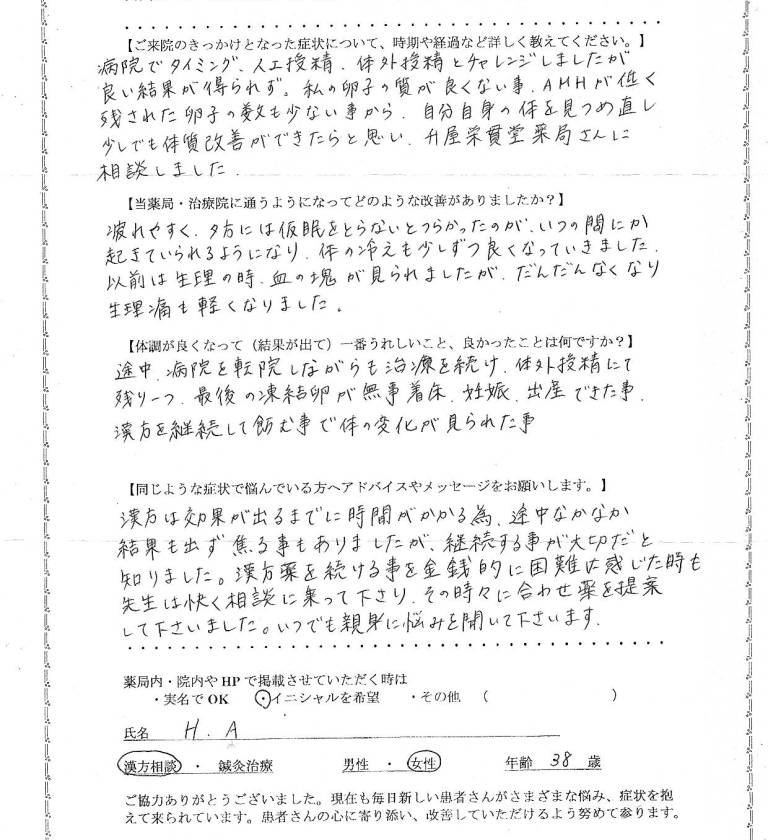 【ご来院のきっかけとなった症状について、時期や経過など詳しく教えてください。】
病院でタイミング、人工授精、体外授精とチャレンジしましたが
良い結果が得られず。私の卵子の質が良くない事、AMHが低く
残された卵子の数も少ない事から、自分自身の体を見つめ直し
少しでも体質改善ができたらと思い、升屋栄貫堂薬局さんに
相談しました。
【当薬局・治療院に通うようになってどのような改善がありましたか？】
疲れやすく、夕方には仮眠をとらないとつらかったのが、いつの間にか
起きていられるようになり、体の冷えも少しずつ良くなっていきました。
以前は生理の時、血の塊が見られましたが、だんだんなくなり
生理痛も軽くなりました。
【体調が良くなって（結果が出て）一番うれしいこと、良かったことは何ですか？】
途中、病院を転院しながらも治療を続け、体外授精にて
残り一つ、最後の凍結卵が無事着床、妊娠、出産できた事。
漢方を継続して飲む事で体の変化が見られた事
【同じような症状で悩んでいる方へアドバイスやメッセージをお願いします。】
漢方は効果が出るまでに時間がかかる為、途中なかなか
結果も出ず焦る事もありましたが、継続する事が大切だと
知りました。漢方薬を続ける事を金銭的に困難に感じた時も
先生は快く相談に乗って下さり、その時々に合わせ薬を提案
して下さいました。いつでも親身に悩みを聞いて下さいます。
薬局内・院内やHPで掲載させていただく時は
・実名でOK ・イニシャルを希望 ・その他 （ ）
氏名 H.A
漢方相談 ・ 鍼灸治療 男性 ・ 女性 年齢 38 歳
ご協力ありがとうございました。現在も毎日新しい患者さんがさまざまな悩み、症状を抱
えて来られています。患者さんの心に寄り添い、改善していただけるよう努めて参ります。